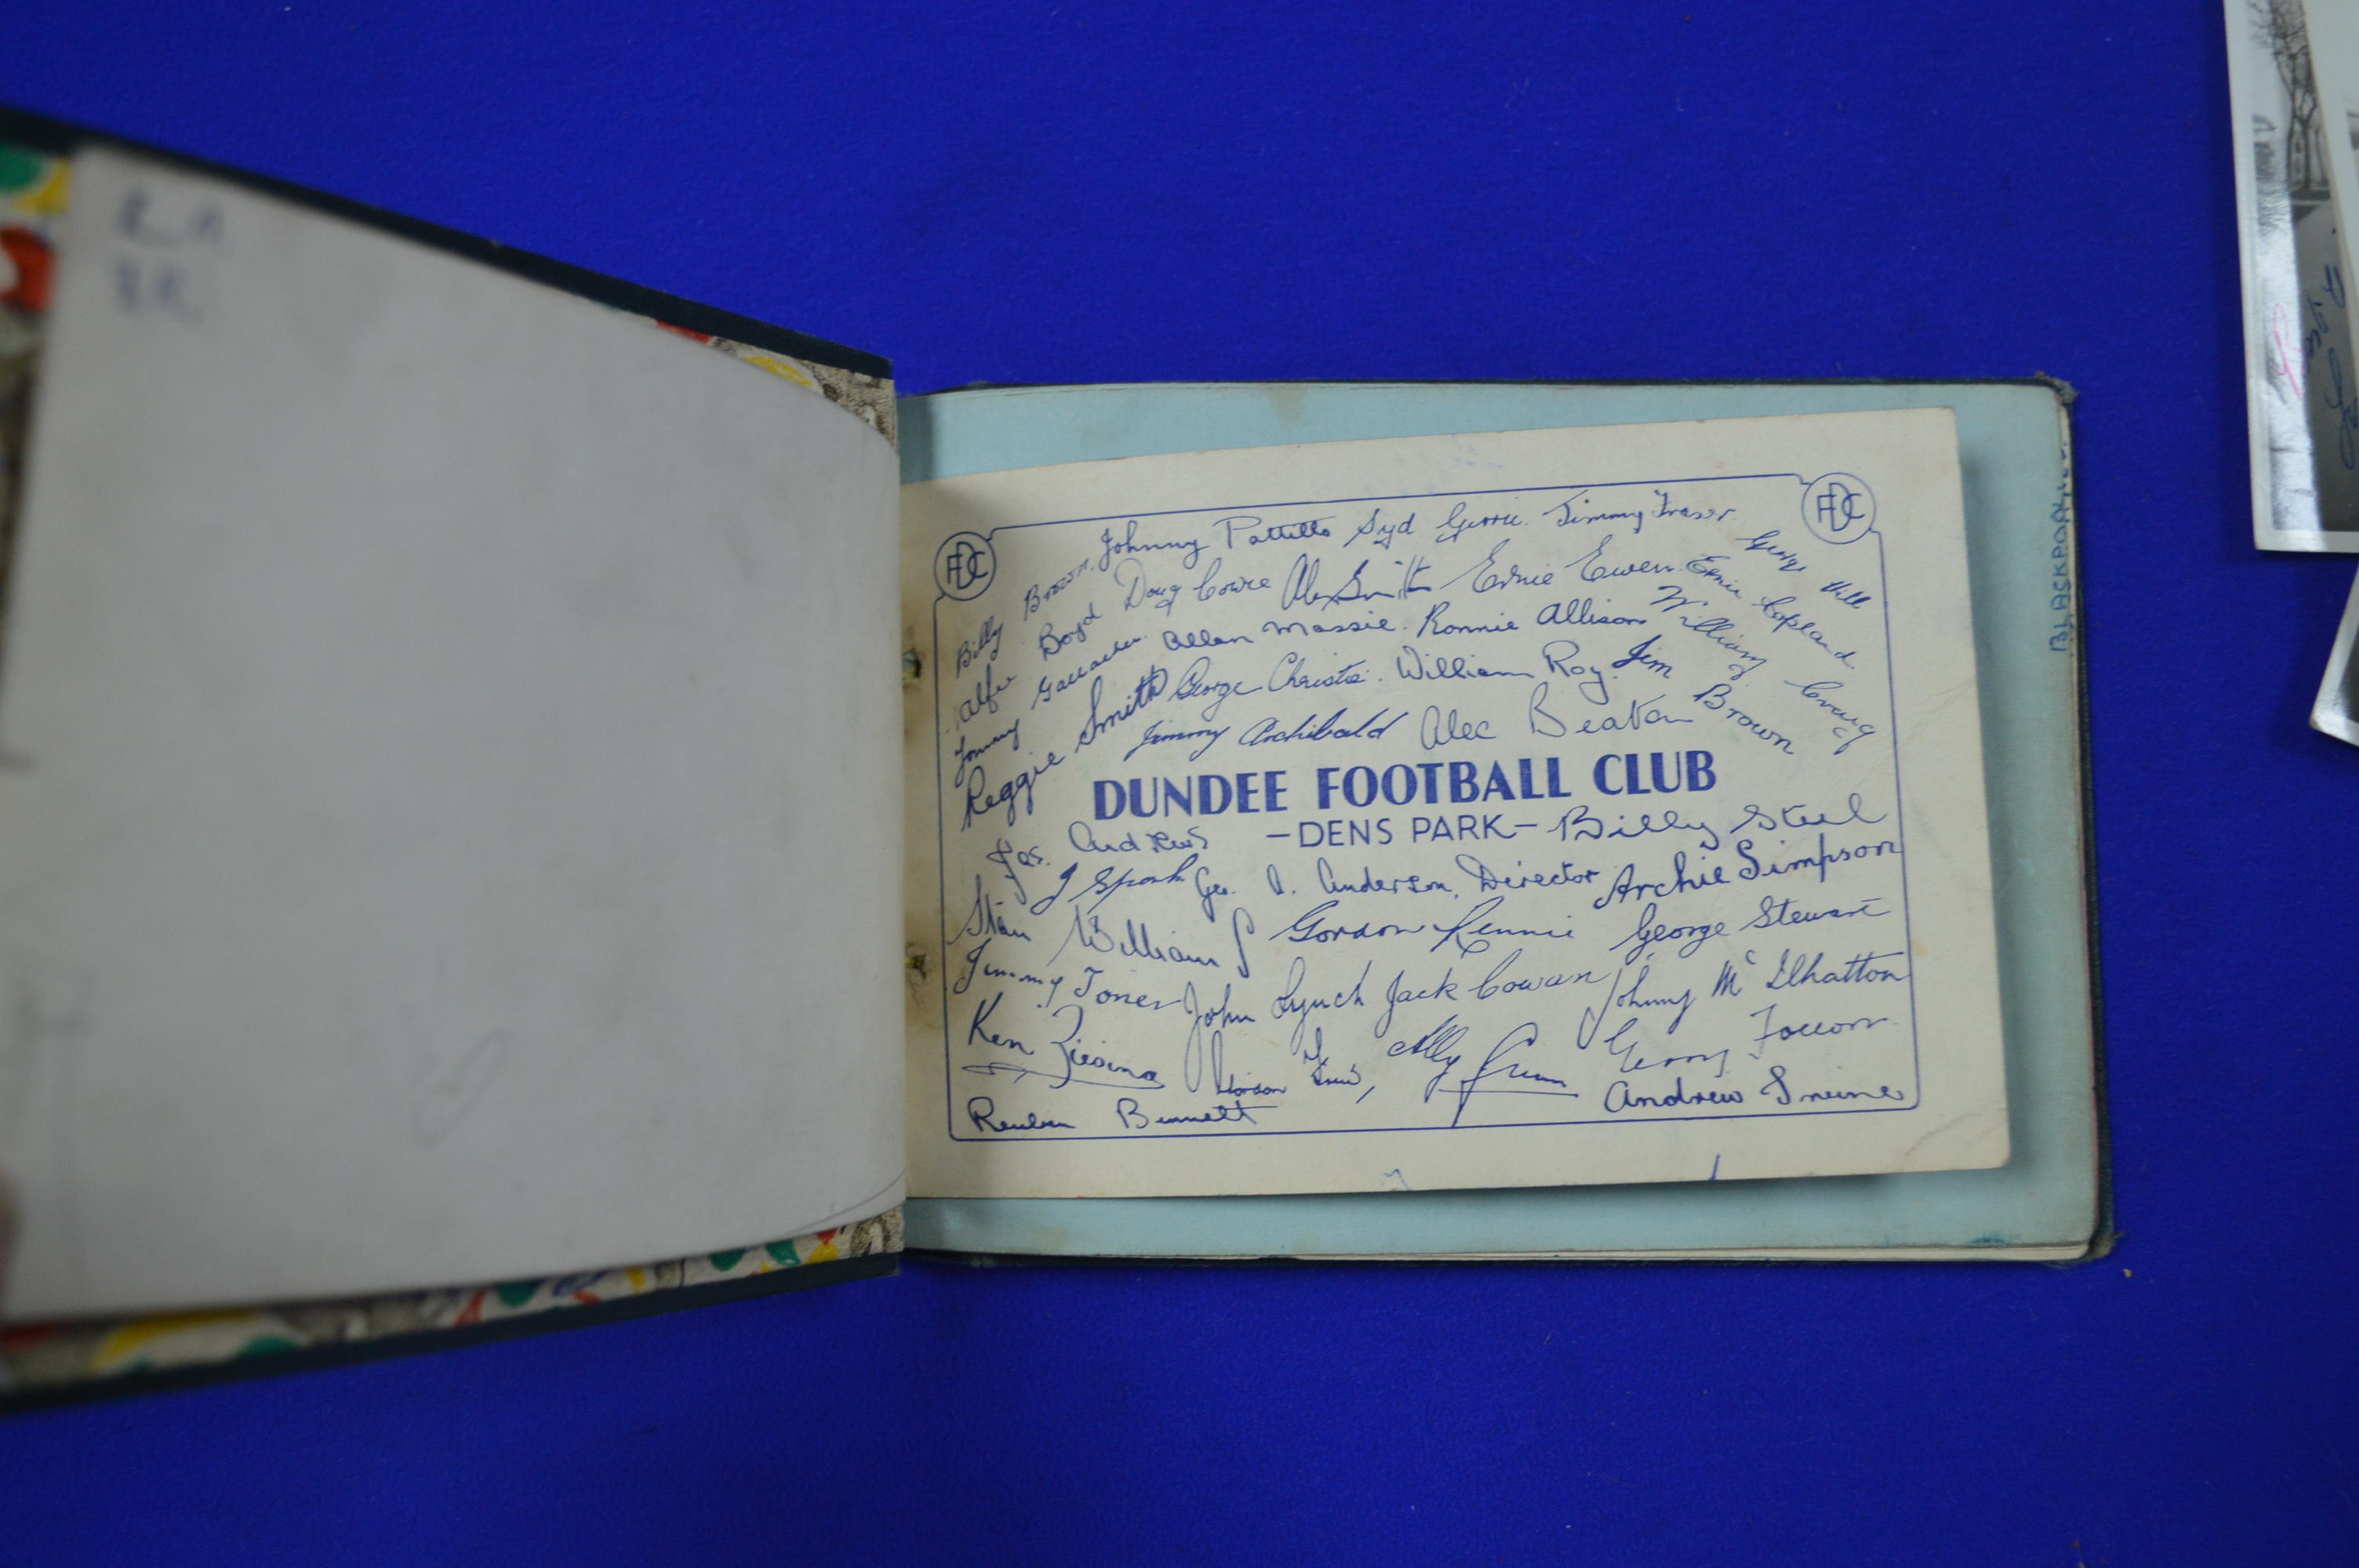 DFC
DFC
Johnny Pattillo Syd Gerrie. Jimmy Fraser
Billy Brown.
George Hill
Alfie Boyd Doug Cowie Alex Smith Ernie Ewen.
Ernie Copland.
Tommy Gallacher Allan Massie. Ronnie Allison
William Craig
Reggie Smith George Christie. William Roy.
Jim Brown
Jimmy Archibald Alec Beaton
DUNDEE FOOTBALL CLUB
-DENS PARK-
Billy Steel
Jas. Andrews
Geo. Anderson, Director Archie Simpson
Stan Williams Gordon Rennie George Stewart
Jimmy Toner John Lynch Jack Cowan Johnny McIlhatton
Ken Ziesing Gordon Ally Gunn Gerry Follon
Reuben Bennett
Andrew Irvine